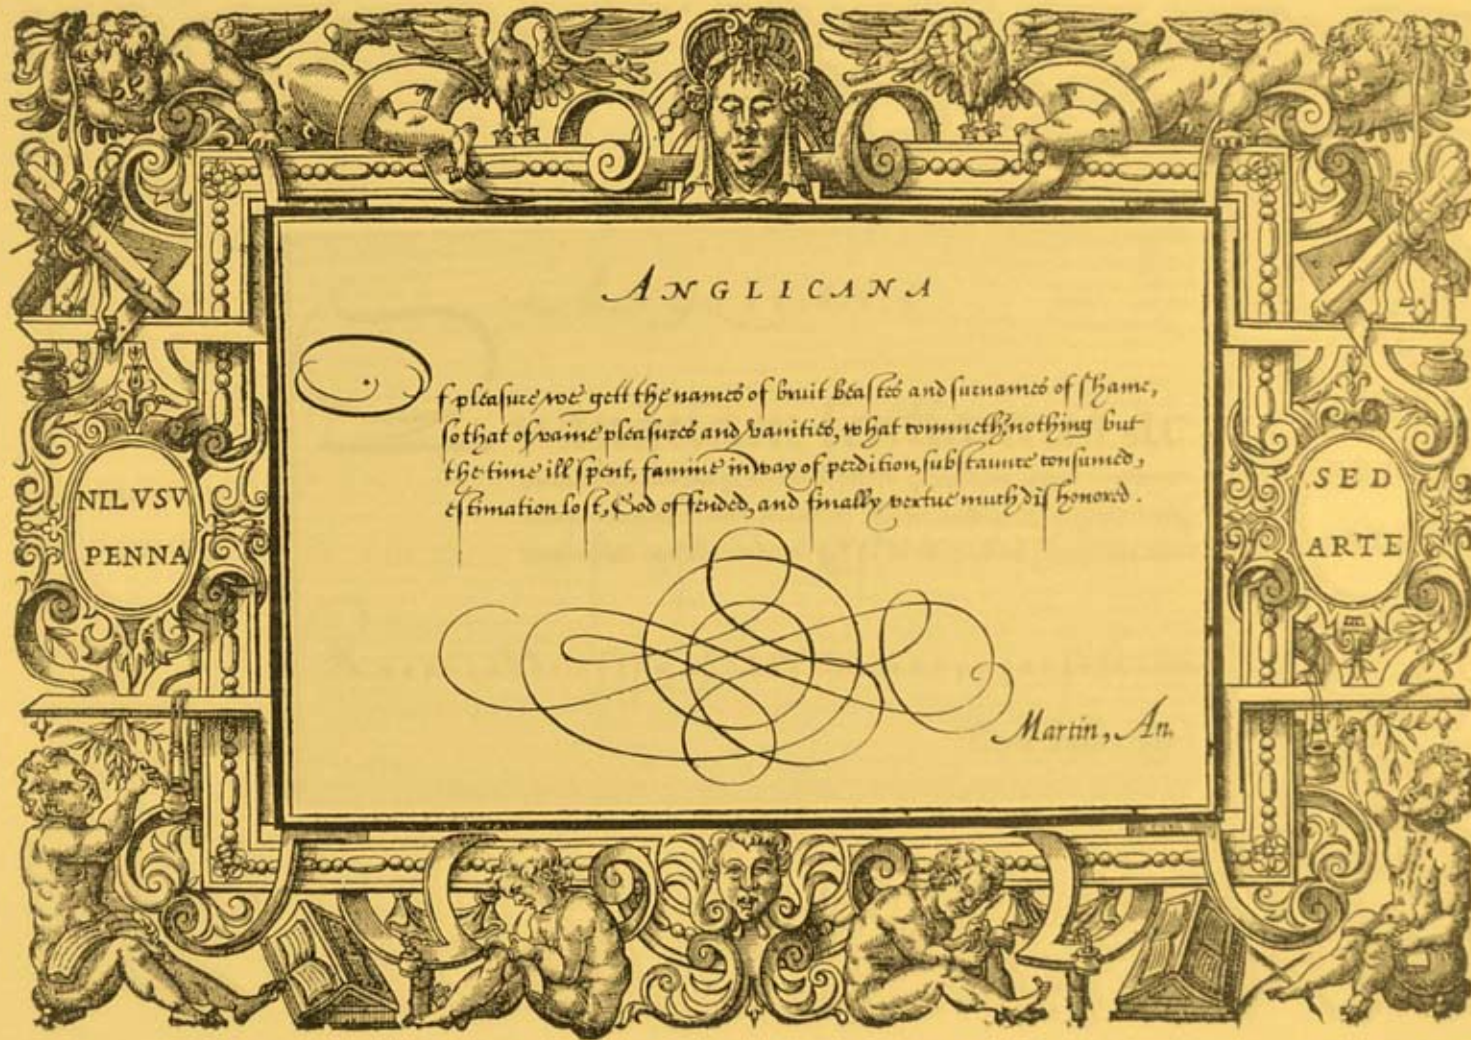 ANGLICANA
Of pleasure we gett the names of bruit beastes and surnames of shame,
so that of vaine pleasures and vanities, what commeth, nothing but
the time ill spent, famine in way of perdition, substaunce consumed,
estimation lost, God offended, and finally vertue much dishonored.
NIL VSV
PENNA
SED
ARTE
Martin, An.